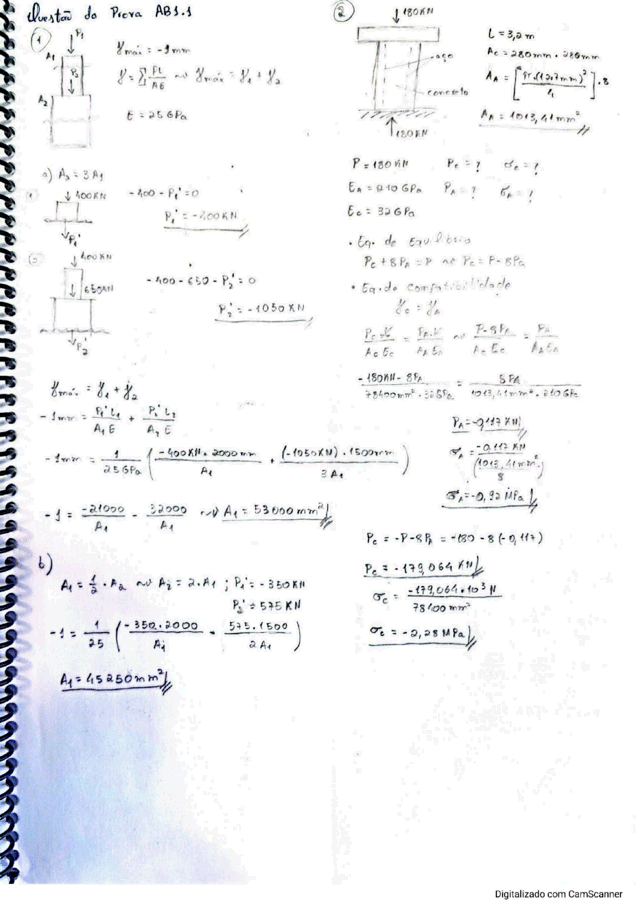 Questão da Prova AB1.1
①
P1
A1
P2
A2
γmáx = -1mm
γ = Σ PL/AE ~> γmáx = γ1 + γ2
E = 25 GPa
a) A2 = 3A1
400KN
P1'
-400 - P1' = 0
P1' = -400KN
400KN
650KN
P2'
-400 - 650 - P2' = 0
P2' = -1050 KN
γmáx = γ1 + γ2
-1mm = P1' L1/A1 E + P2' L2/A2 E
-1mm = 1/25GPa ( -400KN · 2000mm/A1 + (-1050KN) · 1500mm/3A1 )
-1 = -21000/A1 - 32000/A1 ~> A1 = 53000 mm²
b)
A1 = 1/2 · A2 ~> A2 = 2·A1 ; P1' = -350KN
P2' = 575 KN
-1 = 1/25 ( -350·2000/A1 + 575·1500/2A1 )
A1 = 45250mm²
②
180KN
aço
concreto
180KN
L = 3,2m
Ac = 280mm · 280mm
AA = [ π·(12,7mm)²/4 ] · 8
AA = 1013,41mm²
P = 180KN Pc = ? σc = ?
EA = 210 GPa PA = ? σA = ?
Ec = 32 GPa
• Eq. de Equilíbrio
Pc + 8PA = P ~> Pc = P - 8PA
• Eq. de compatibilidade
γc = γA
Pc·L/Ac Ec = PA·L/AA EA ~> P-8PA/Ac Ec = PA/AA EA
-180KN - 8PA/78400mm² · 32GPa = 8PA/1013,41mm² · 210GPa
PA = -0,117 KN
σA = -0,117 KN/(1013,41mm²/8)
σA = -0,92 MPa
Pc = -P-8PA = -180 - 8(-0,117)
Pc = -179,064 KN
σc = -179,064·10³ N/78400mm²
σc = -2,28 MPa
Digitalizado com CamScanner